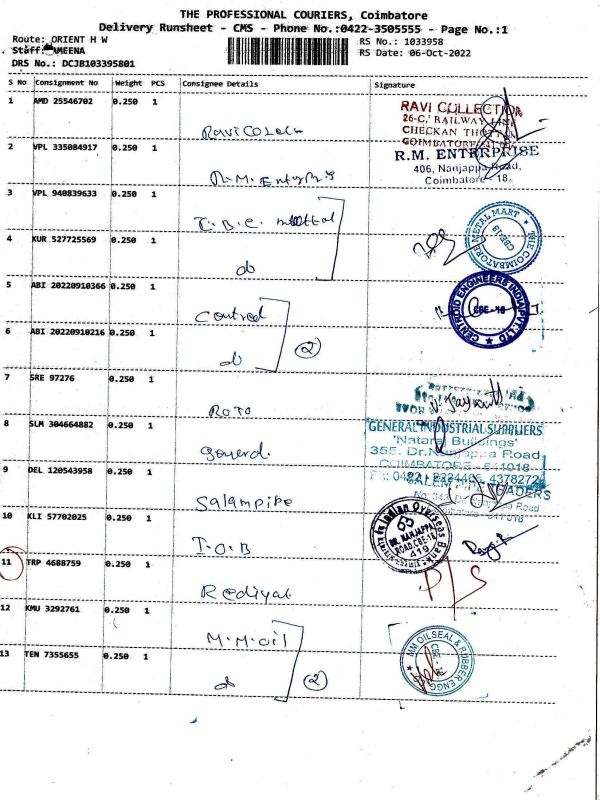 THE PROFESSIONAL COURIERS, Coimbatore
Delivery Runsheet - CMS - Phone No.:0422-3505555 - Page No.:1
Route: ORIENT H W
RS No.: 1033958
Staff: AMEENA
RS Date: 06-Oct-2022
DRS No.: DCJB103395801
S No Consignment No Weight PCS Consignee Details Signature
1 AMD 25546702 0.250 1
RAVI COLLECTION
26-C, RAILWAY
CHECKAN
COIMBATORE
2 VPL 335084917 0.250 1
R.M. ENTERPRISE
406, Nanjappa Road,
Coimbatore - 18.
R.M.
3 VPL 940839633 0.250 1
C.B.E. mettal
THE COIMBATORE METAL MART
CBE-18
4 KUR 527725569 0.250 1
do
5 ABI 20220910366 0.250 1
CENTROID ENGINEERS INDIA PVT. LTD
CBE - 18
6 ABI 20220910216 0.250 1
do
2
7 SRE 97276 0.250 1
ROTO
8 SLM 304664882 0.250 1
GENERAL INDUSTRIAL SUPPLIERS
'Nataraj Buildings'
355, Dr.Nanjappa Road,
COIMBATORE - 641018
9 DEL 120543958 0.250 1
SALEM
TRADERS
Salampipe
10 KLI 57702025 0.250 1
Indian Overseas Bank
DR. NANJAPPA
ROAD, CBE-18
I.O.B
11 TRP 4688759 0.250 1
P/S
Rediyal
12 KMU 3292761 0.250 1
M.M.oil
MM OILSEAL & RUBBER ENGG
13 TEN 7355655 0.250 1
do
2